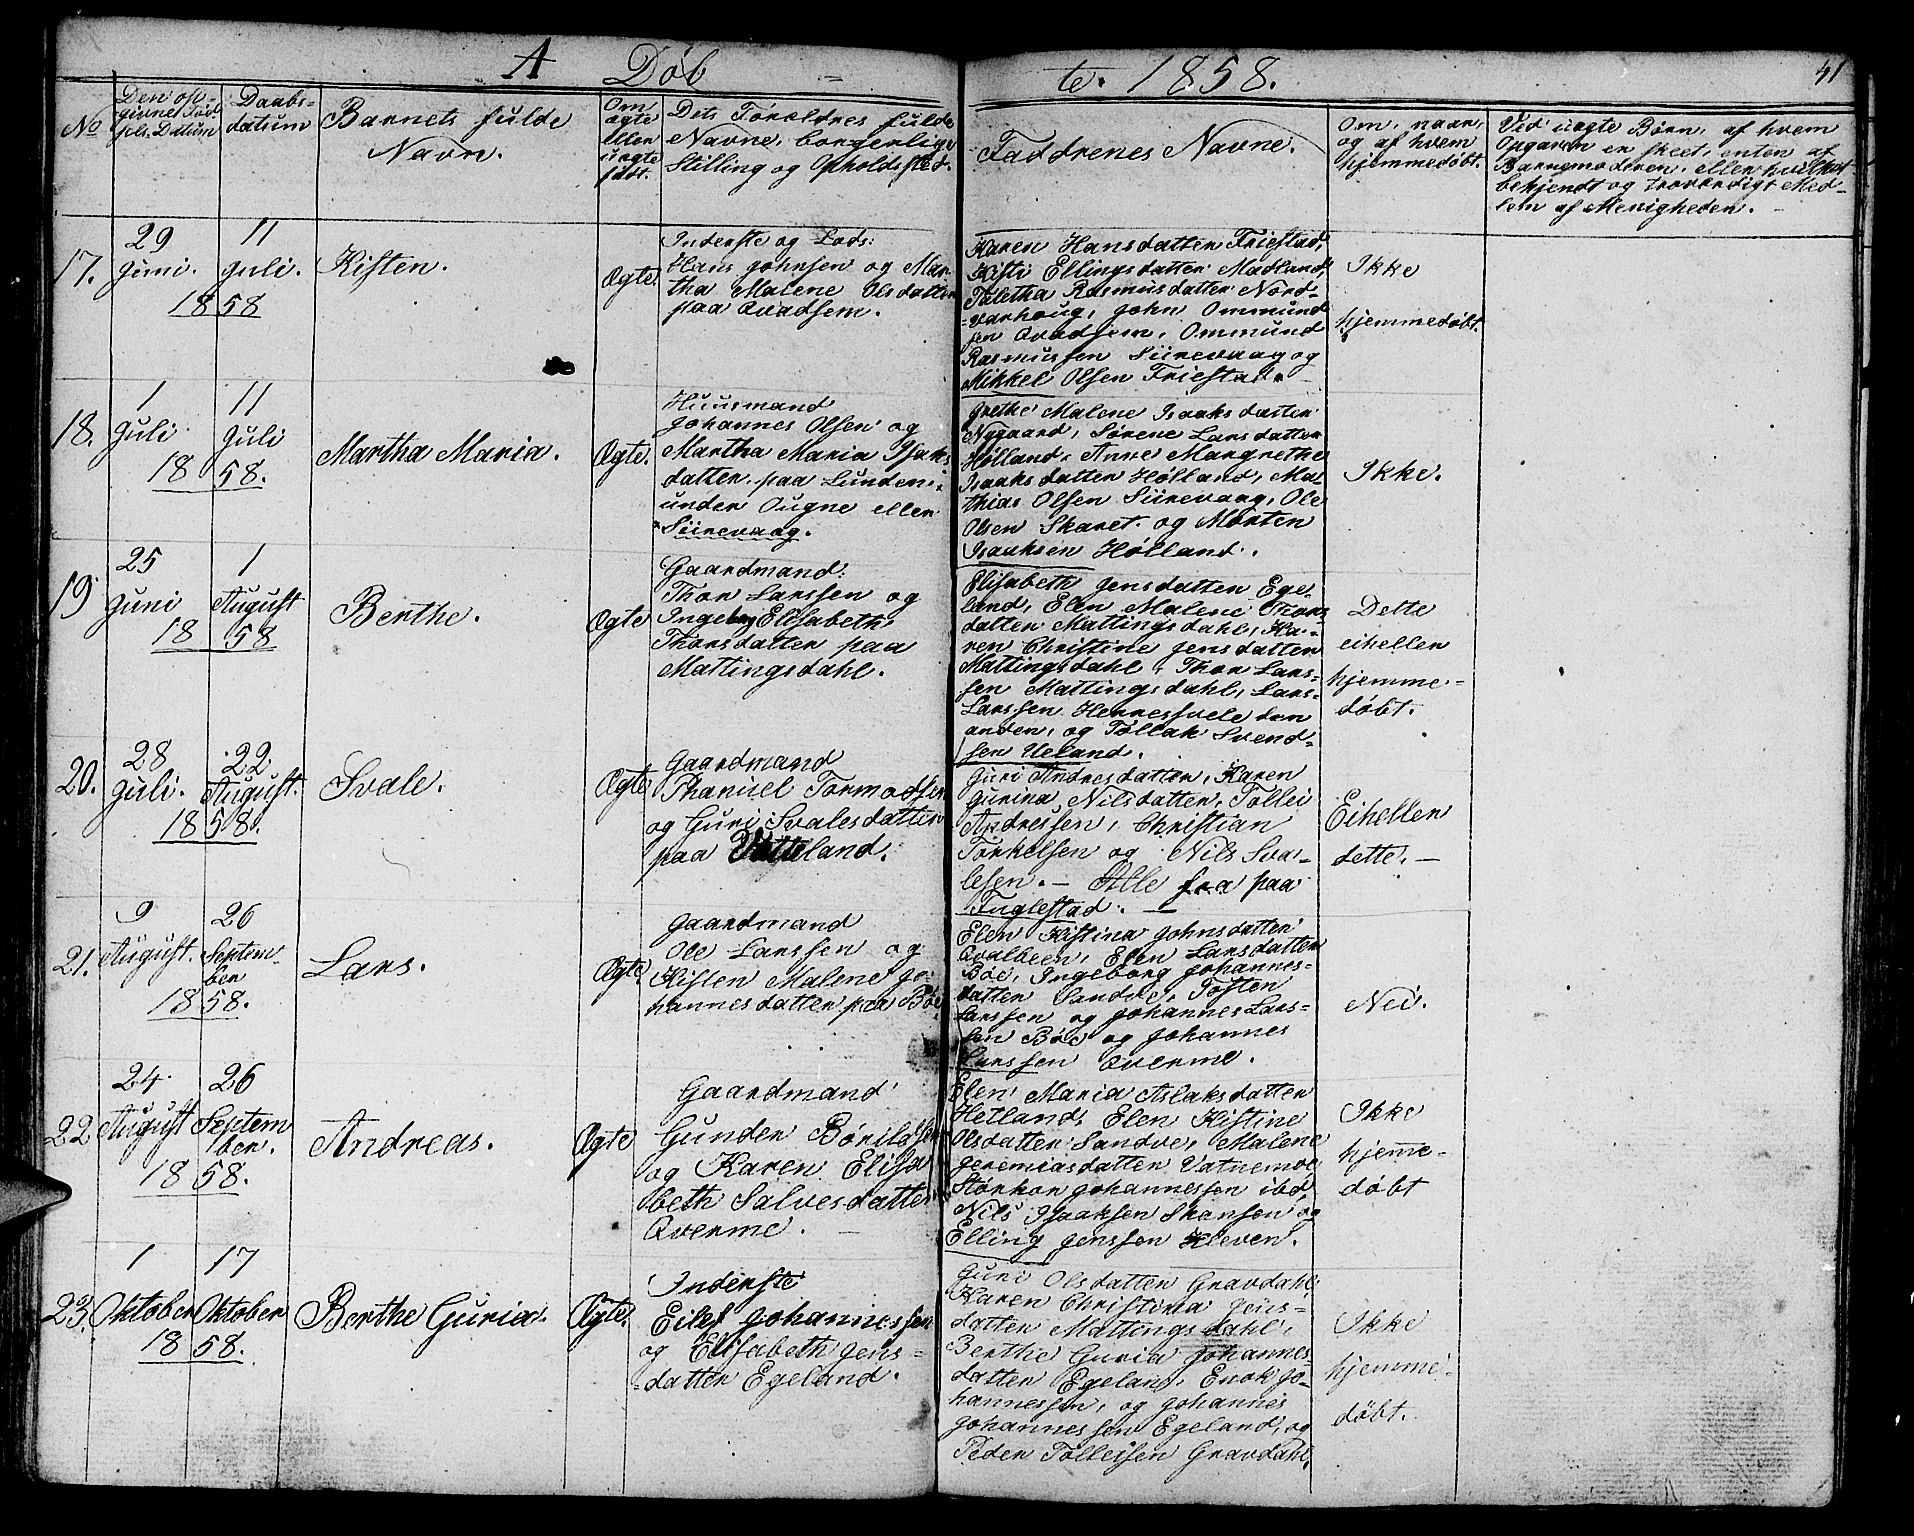 A Döb
te. 1858.
41
No
Den op-
givne Föd-
sels Datum
Daabs-
datum
Barnets fulde
Navn.
Om
ægte
eller
uægte
født.
Dets Forældres fulde
Navne, borgerlige
Stilling og Opholdssted.
Faddrenes Navne.
Om, naar,
og af hvem
hjemmedöbt.
Ved uægte Börn, af hvem
Opgaven er skeet, enten af
Barnemoderen, eller hvilket
bekjendt og troværdigt Med-
lem af Menigheden. -
17.
29
Juni.
11
Juli.
1858
Kisten.
Ægte.
Inderste og Lods:
Hans Johnsen og Mar-
tha Malene Olsdatter
paa Qvadsem.
Karen Hansdatter Friestad,
Kisti Ellingsdatter Madland,
Taletha Rasmusdatter Nord-
varhoug, John Ommund
sen Qvadsem, Ommund
Rasmussen Siirevaag og
Mikkel Olsen Friestad.
Ikke
hjemmedöbt.
18.
1
Juli
11
Juli
1858.
Martha Maria.
Ægte.
Huusmand
Johannes Olsen og
Martha Maria Isaks
datter paa Lunden
under Ougne eller
Siirevaag.
Grethe Malene Isaaksdatter
Nygaard, Sörene Larsdatter
Hölland, Anne Margrethe
Isaaksdatter Hölland, Ma-
thias Olsen Siirevaag, Ole
Olsen Skaret og Morten
Isaaksen Hölland.
Ikke.
19
25
Juni
1
August
1858
Berthe.
Ægte
Gaardmand:
Thor Larssen og
Ingeborg Elisabeth
Thorsdatter paa
Mattingsdahl.
Elisabeth Jensdatter Ege-
land, Elen Malene Thors
datter Mattingsdahl, Ka-
ren Christine Jensdatter
Mattingsdahl, Thor Lars-
sen Mattingsdahl, Lars
Larssen Hennessvele den
anden, og Tollak Svend-
sen Ueland.
Dette
eiheller
hjemme-
döbt.
20.
28
Juli.
22
August.
1858.
Svale.
Ægte
Gaardmand
Phaniel Tormodsen
og Guri Svalesdatter
paa Vatteland.
Guri Andresdatter, Karen
Gurina Nilsdatter, Tollei
Andressen, Christian
Torkelsen og Nils Sva-
lesen. - Alle fra paa
Fuglestad. -
Eiheller
dette. -
21.
9
August.
26
Septem-
ber
1858.
Lars.
Ægte
Gaardmand
Ole Larssen og
Kisten Malene Jo-
hannesdatter paa Böe.
Elen Kistina Johnsdatter
Qvalbeen, Elen Larsdatter
Böe, Ingeborg Johannes-
datter Sandve, Tosten
Larssen og Johannes Lars-
sen Böe og Johannes
Larssen Qverme.
Nei.
22
24
August
26
Septem
ber.
1858.
Andreas.
Ægte
Gaardmand
Gunder Börildsen
og Karen Elisa
beth Salvesdatter
Qverme. -
Elen Maria Aslaksdatter
Hetland, Elen Kistine
Olsdatter Sandve, Malene
Jeremiasdatter Vatnemoe
Störkor Johannessen ibd,
Nils Isaaksen Skansen og
Elling Jenssen Kleven.
Ikke
hjeme-
döbt
23.
1
Oktober
17
Oktober
1858.
Berthe Guria.
Ægte.
Inderste
Eilef Johannessen
og Elisabeth Jens-
datter Egeland.
Guri Olsdatter Gravdahl,
Karen Christina Jens-
datter Mattingsdahl,
Berthe Guria Johannes-
datter Egeland, Enok Jo-
hannessen, og Johannes
Johannessen Egeland, og
Peder Tolleisen Gravdahl,
Ikke
hjemme-
döbt.